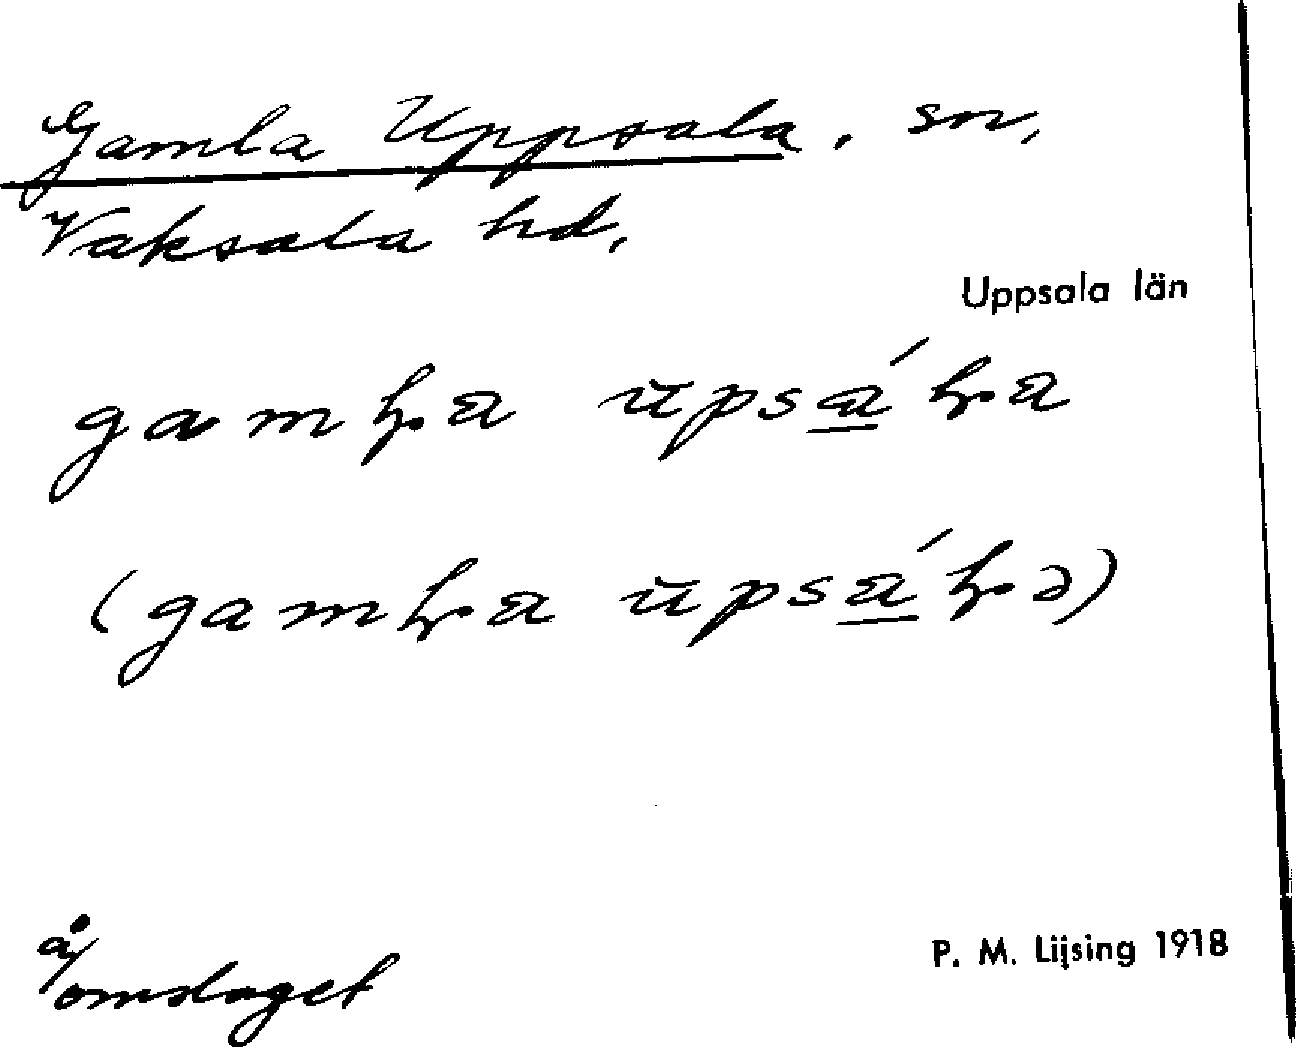 Gamla Uppsala, sn,
Vaksala hd,
Uppsala län
gamḷa ŭpsá̱ḷa
(gamḷa ŭpsá̱ḷə)
å/omslaget
P. M. Lijsing 1918